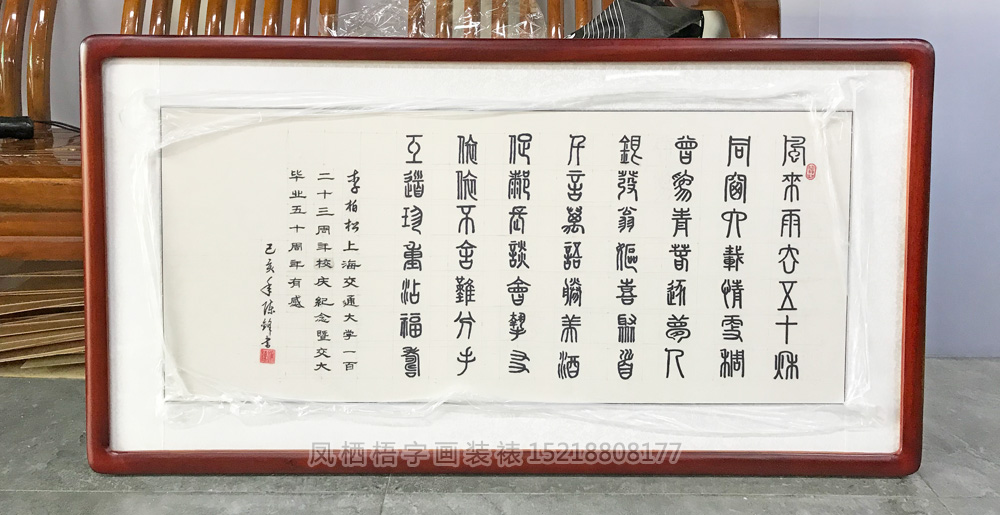 風來雨去五十秋
同窗六載情更稠
曾為青春逐夢人
銀發翁嫗喜聚首
千言萬語勝美酒
促鄰長談會摯友
依依不舍難分手
互道珍重沾福壽
李柏松上海交通大学一百
二十三周年校庆纪念暨交大
毕业五十周年有感
己亥年陈锋书
凤栖梧字画装裱15218808177